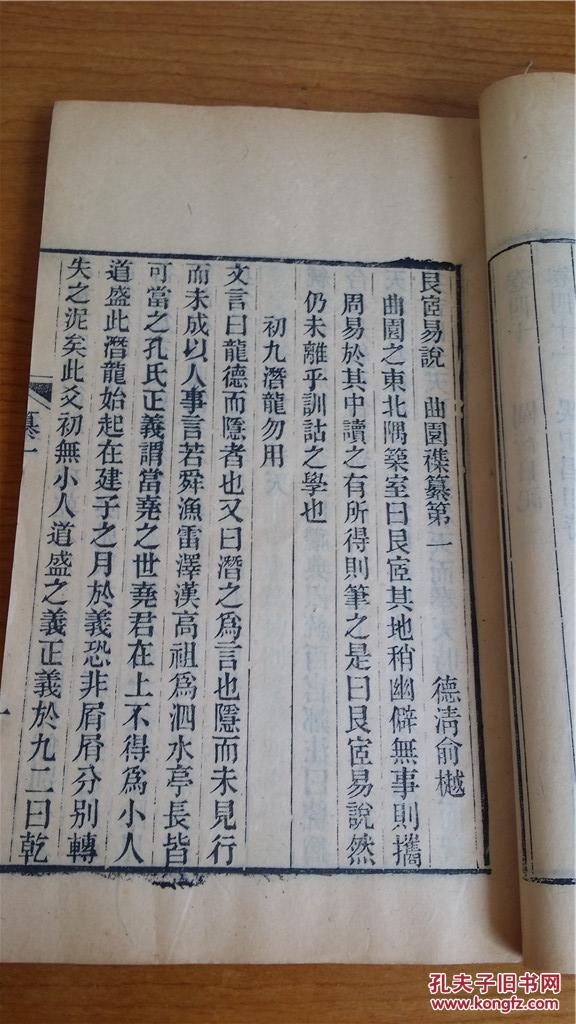 艮宧易說 曲園襍纂第一 德淸俞樾
曲園之東北隅築室曰艮宧其地稍幽僻無事則攜
周易於其中讀之有所得則筆之是曰艮宧易說然
仍未離乎訓詁之學也
初九潛龍勿用
文言曰龍德而隱者也又曰潛之爲言也隱而未見行
而未成以人事言若舜漁雷澤漢高祖爲泗水亭長皆
可當之孔氏正義謂當堯之世堯君在上不得爲小人
道盛此潛龍始起在建子之月於義恐非屑屑分別轉
失之泥矣此爻初無小人道盛之義正義於九二曰乾
纂一
一
孔夫子旧书网
www.kongfz.com